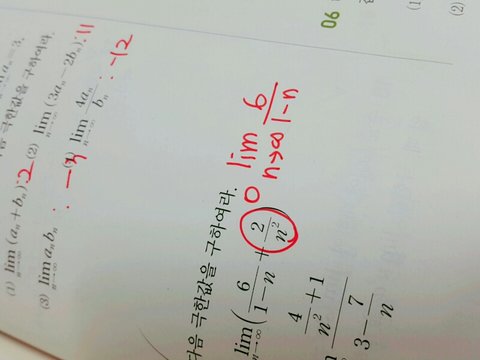 a_n = 3,
음 극한값을 구하여라.
(1) lim_{n→∞} (a_n + b_n) : 2 (2) lim_{n→∞} (3a_n − 2b_n) : 11
(3) lim_{n→∞} a_n b_n : -3 lim_{n→∞} 4a_n / b_n : -12
06
(1)
(2)
다음 극한값을 구하여라.
lim_{n→∞} ( 6/(1−n) + 2/n² ) 0 lim_{n→∞} 6/(1-n)
4/(n²+1)
3 − 7/n